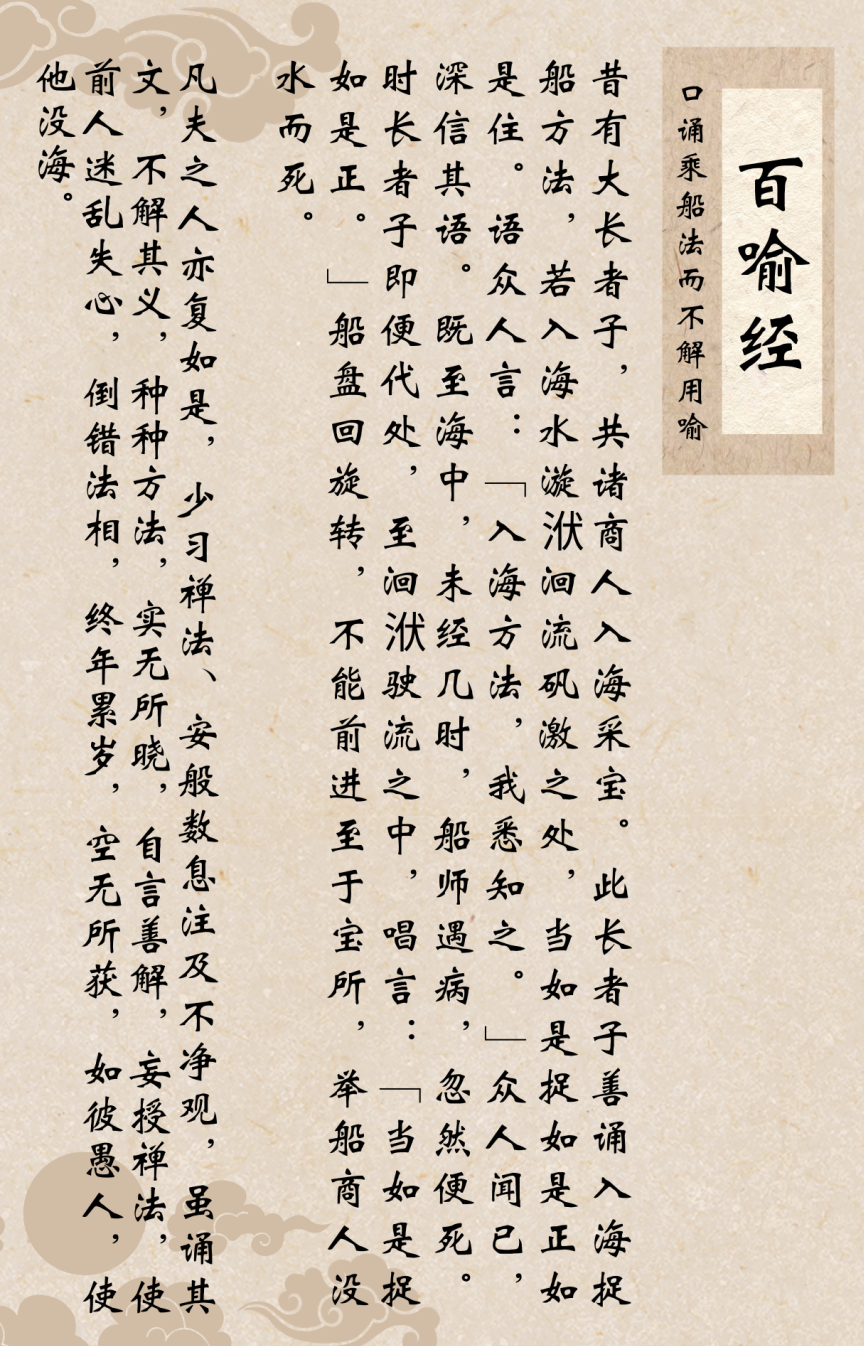 百喻经
口诵乘船法而不解用喻
昔有大长者子，共诸商人入海采宝。此长者子善诵入海捉
船方法，若入海水漩洑洄流矶激之处，当如是捉如是正如
是住。语众人言：「入海方法，我悉知之。」众人闻已，
深信其语。既至海中，未经几时，船师遇病，忽然便死。
时长者子即便代处，至洄洑驶流之中，唱言：「当如是捉
如是正。」船盘回旋转，不能前进至于宝所，举船商人没
水而死。
凡夫之人亦复如是，少习禅法、安般数息注及不净观，虽诵其
文，不解其义，种种方法，实无所晓，自言善解，妄授禅法，使
前人迷乱失心，倒错法相，终年累岁，空无所获，如彼愚人，使
他没海。